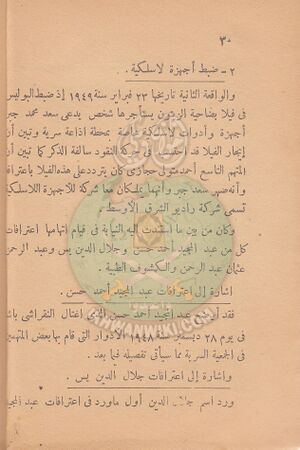 ٣٠
٢ - ضبط أجهزة لاسلكية .
والواقعة الثانية تاريخها ٢٣ فبراير سنة ١٩٤٩ إذ ضبط البوليس
فى فيلا بضاحية الزيتون يستأجرها شخص يدعى سعد محمد جبر
أجهزة وأدوات لاسلكية خاصة بمحطة اذاعة سرية وتبين أن
إيجار الفيلا قد احتسب فى حركة النقود سالفة الذكر كما تبين أن
المتهم التاسع أحمد متولى حجازى كان يتردد على هذه الفيلا باعترافه
وأنه صهر سعد جبر وأنهما يملكان معا شركة للأجهزة اللاسلكية
تسمى شركة راديو الشرق الأوسط .
وكان من بين ما استندت اليه النيابة فى قيام اتهامها اعترافات
كل من عبد المجيد أحمد حسن وجلال الدين يس وعبد الرحمن
عثمان عبد الرحمن والكشوف الطبية .
اشارة إلى اعترافات عبد المجيد أحمد حسن .
فقد عبد المجيد أحمد حسن الذى اغتال النقراشى باشا
فى يوم ٢٨ ديسمبر سنة ١٩٤٨ الأدوار التى قام بها بعض المتهمين
فى الجمعية السرية مما سيأتى تفصيله فيما بعد .
واشارة إلى اعترافات جلال الدين يس .
ورد اسم جلال الدين أول ماورد فى اعترافات عبد المجيد
IKHWANWIKI.COM